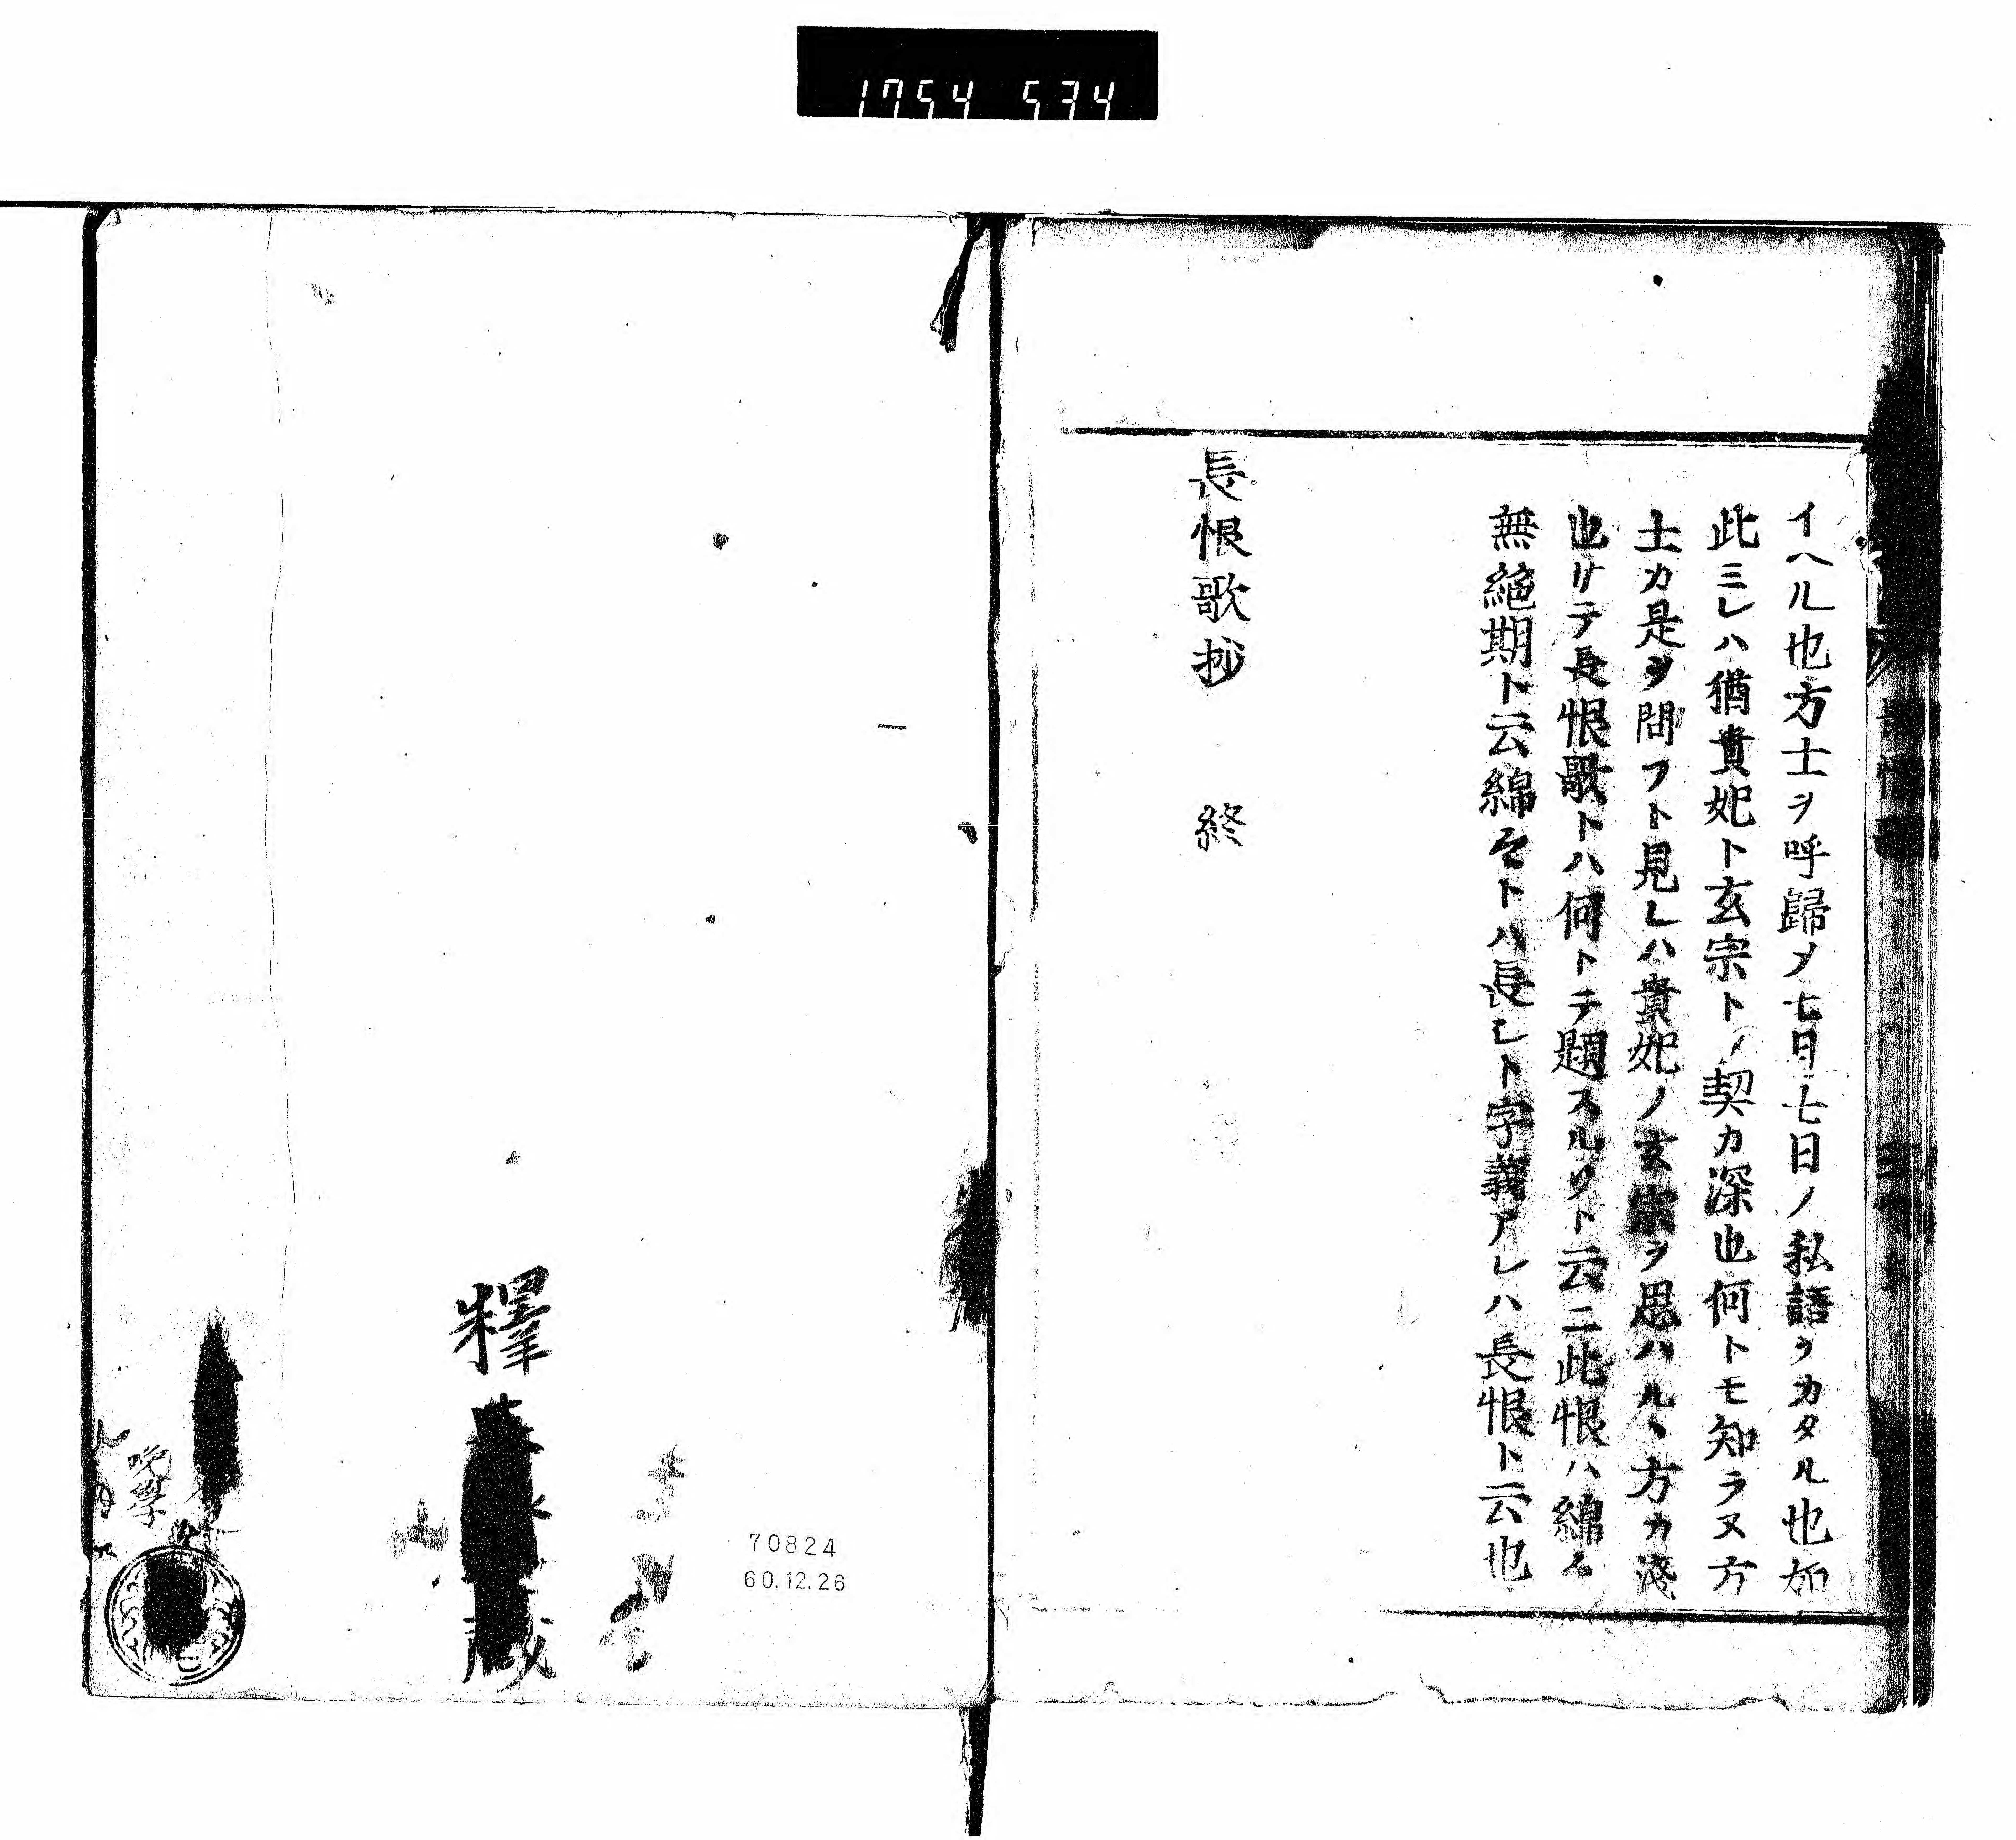 1754 534
イヘル也方士ヲ呼歸メ七日七日ノ私語ヲカタル也如
此ミレハ猶貴妃ト玄宗トノ契カ深也何トモ知ラヌ方
士カ是ヲ問フト見レハ貴妃ノ玄宗ヲ思ハルヽ方カ淺
也サテ長恨歌トハ何トテ題スルソト云ニ此恨ハ綿々
無絶期ト云綿々トハ長シト字義アレハ長恨ト云也
長恨歌抄 終
70824
60.12.26
釋
藏
晩學